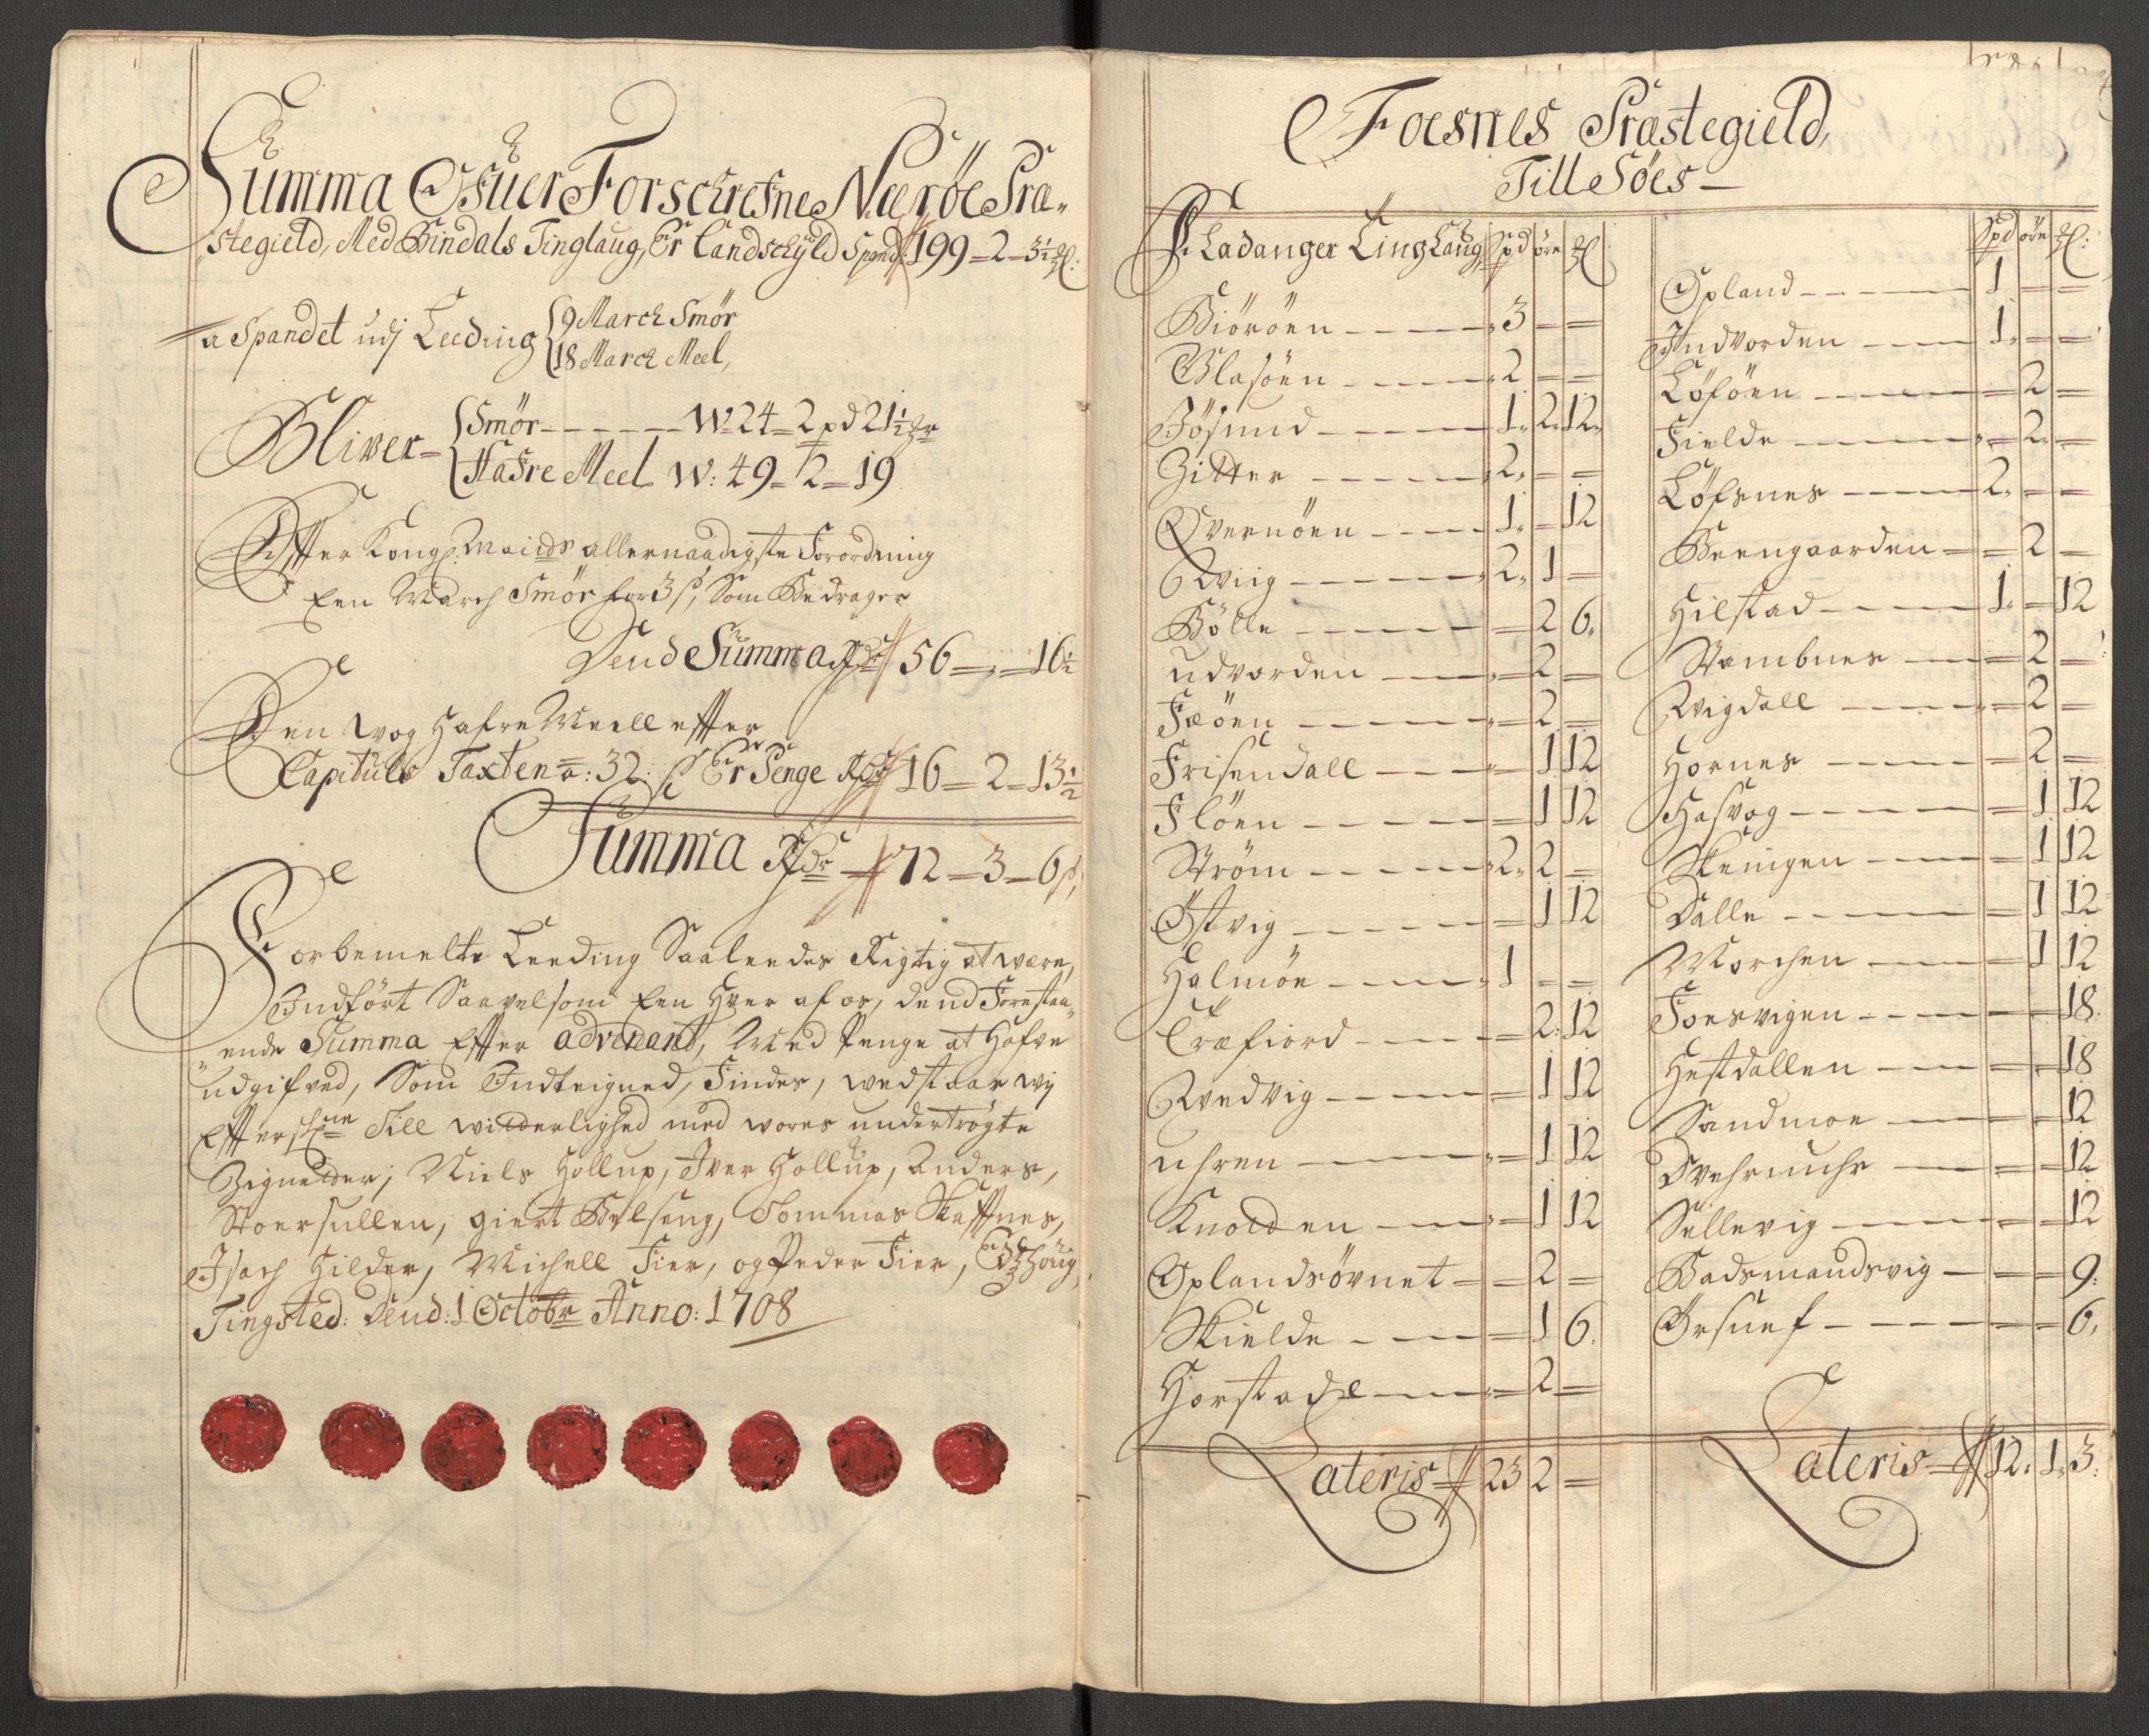 Summa Ofuer Forschrefne Nærøe Præ-
stegield, Med Bindals Tinglaug, Er Landschyld Spand: 199-2-3½ ℔:
a Spandet udj Leeding
9 March Smör
18 March Meel,
Bliver-
Smör------ W 24-2 pd 21½ ℔r
Hafre Meel W: 49-2-19
Effter Kongl. Maits allernaadigste Forordning
Een March Smör for 3 s, Som Bedrager
Dend Summa Rdr 56-"-16½
Den Wog Hafre Meell effter
Capituls Taxten a: 32 s Er Penge Rdr 16-2-13½
Summa Rdr 72-3-6 s,
Forbemelte Leeding Saaledes Rigtig at være,
Indført Saavelsom Een Hver af os, dend Forestaa-
ende Summa Effter advenant, Med Penge at Hafve
udgifved, Som Indteigned, Findes, wedstaar wij
Efterschne Till widderlighed med wores undertrögte
Zignetter, Niels Hollup, Iver Hollup, Anders,
Stoersullen, giert Bölseng, Tommas Skaffnes,
Isach Hilder, Michell Fier, og Peder Fier,
Tingsted: Dend: 1 Octobr Anno: 1708
Foesnes Præstegield,
Till Söes-
Ladanger Tinglaug Spd öre ℔
Biöröen - 3 - -
Blasöen - 2 - -
Jösund - 1 2 12
Zitter - 2 - -
Qvernöen - 1 - 12
Qviig - 2 1 -
Bölle - - 2 6
udvorden - - 2 -
Fæöen - - 2 -
Frisendall - - 1 12
Flöen - - 1 12
Ström - 2 2 -
Östvig - - 1 12
Halmöe - 1 - -
Træfiord - - 2 12
Qvedvig - - 1 12
uhren - - 1 12
Knolden - - 1 12
Oplandsövnet - - 2 -
Skielde - - 1 6
Horstad - - 2 -
Lateris 23 2 -
Spd öre ℔:
Opland - 1 - -
Indvorden - 1 - -
Löföen - - 2 -
Fielde - - 2 -
Löfsnes - 2 - -
Beengaarden - - 2 -
Hilstad - 1 - 12
Stambnes - - 2 -
Wigdall - - 2 -
Hornes - - 2 -
Hasvog - - 1 12
Skeingen - - 1 12
Dalle - - 1 12
Morchen - - 1 12
Foesvigen - - - 18
Hestdallen - - - 18
Sandmoe - - - 12
Dvehrnuhr - - - 12
Sellevig - - - 12
Badsmandsvig - - - 9
Örsnef - - - 6
Lateris 12 1 3